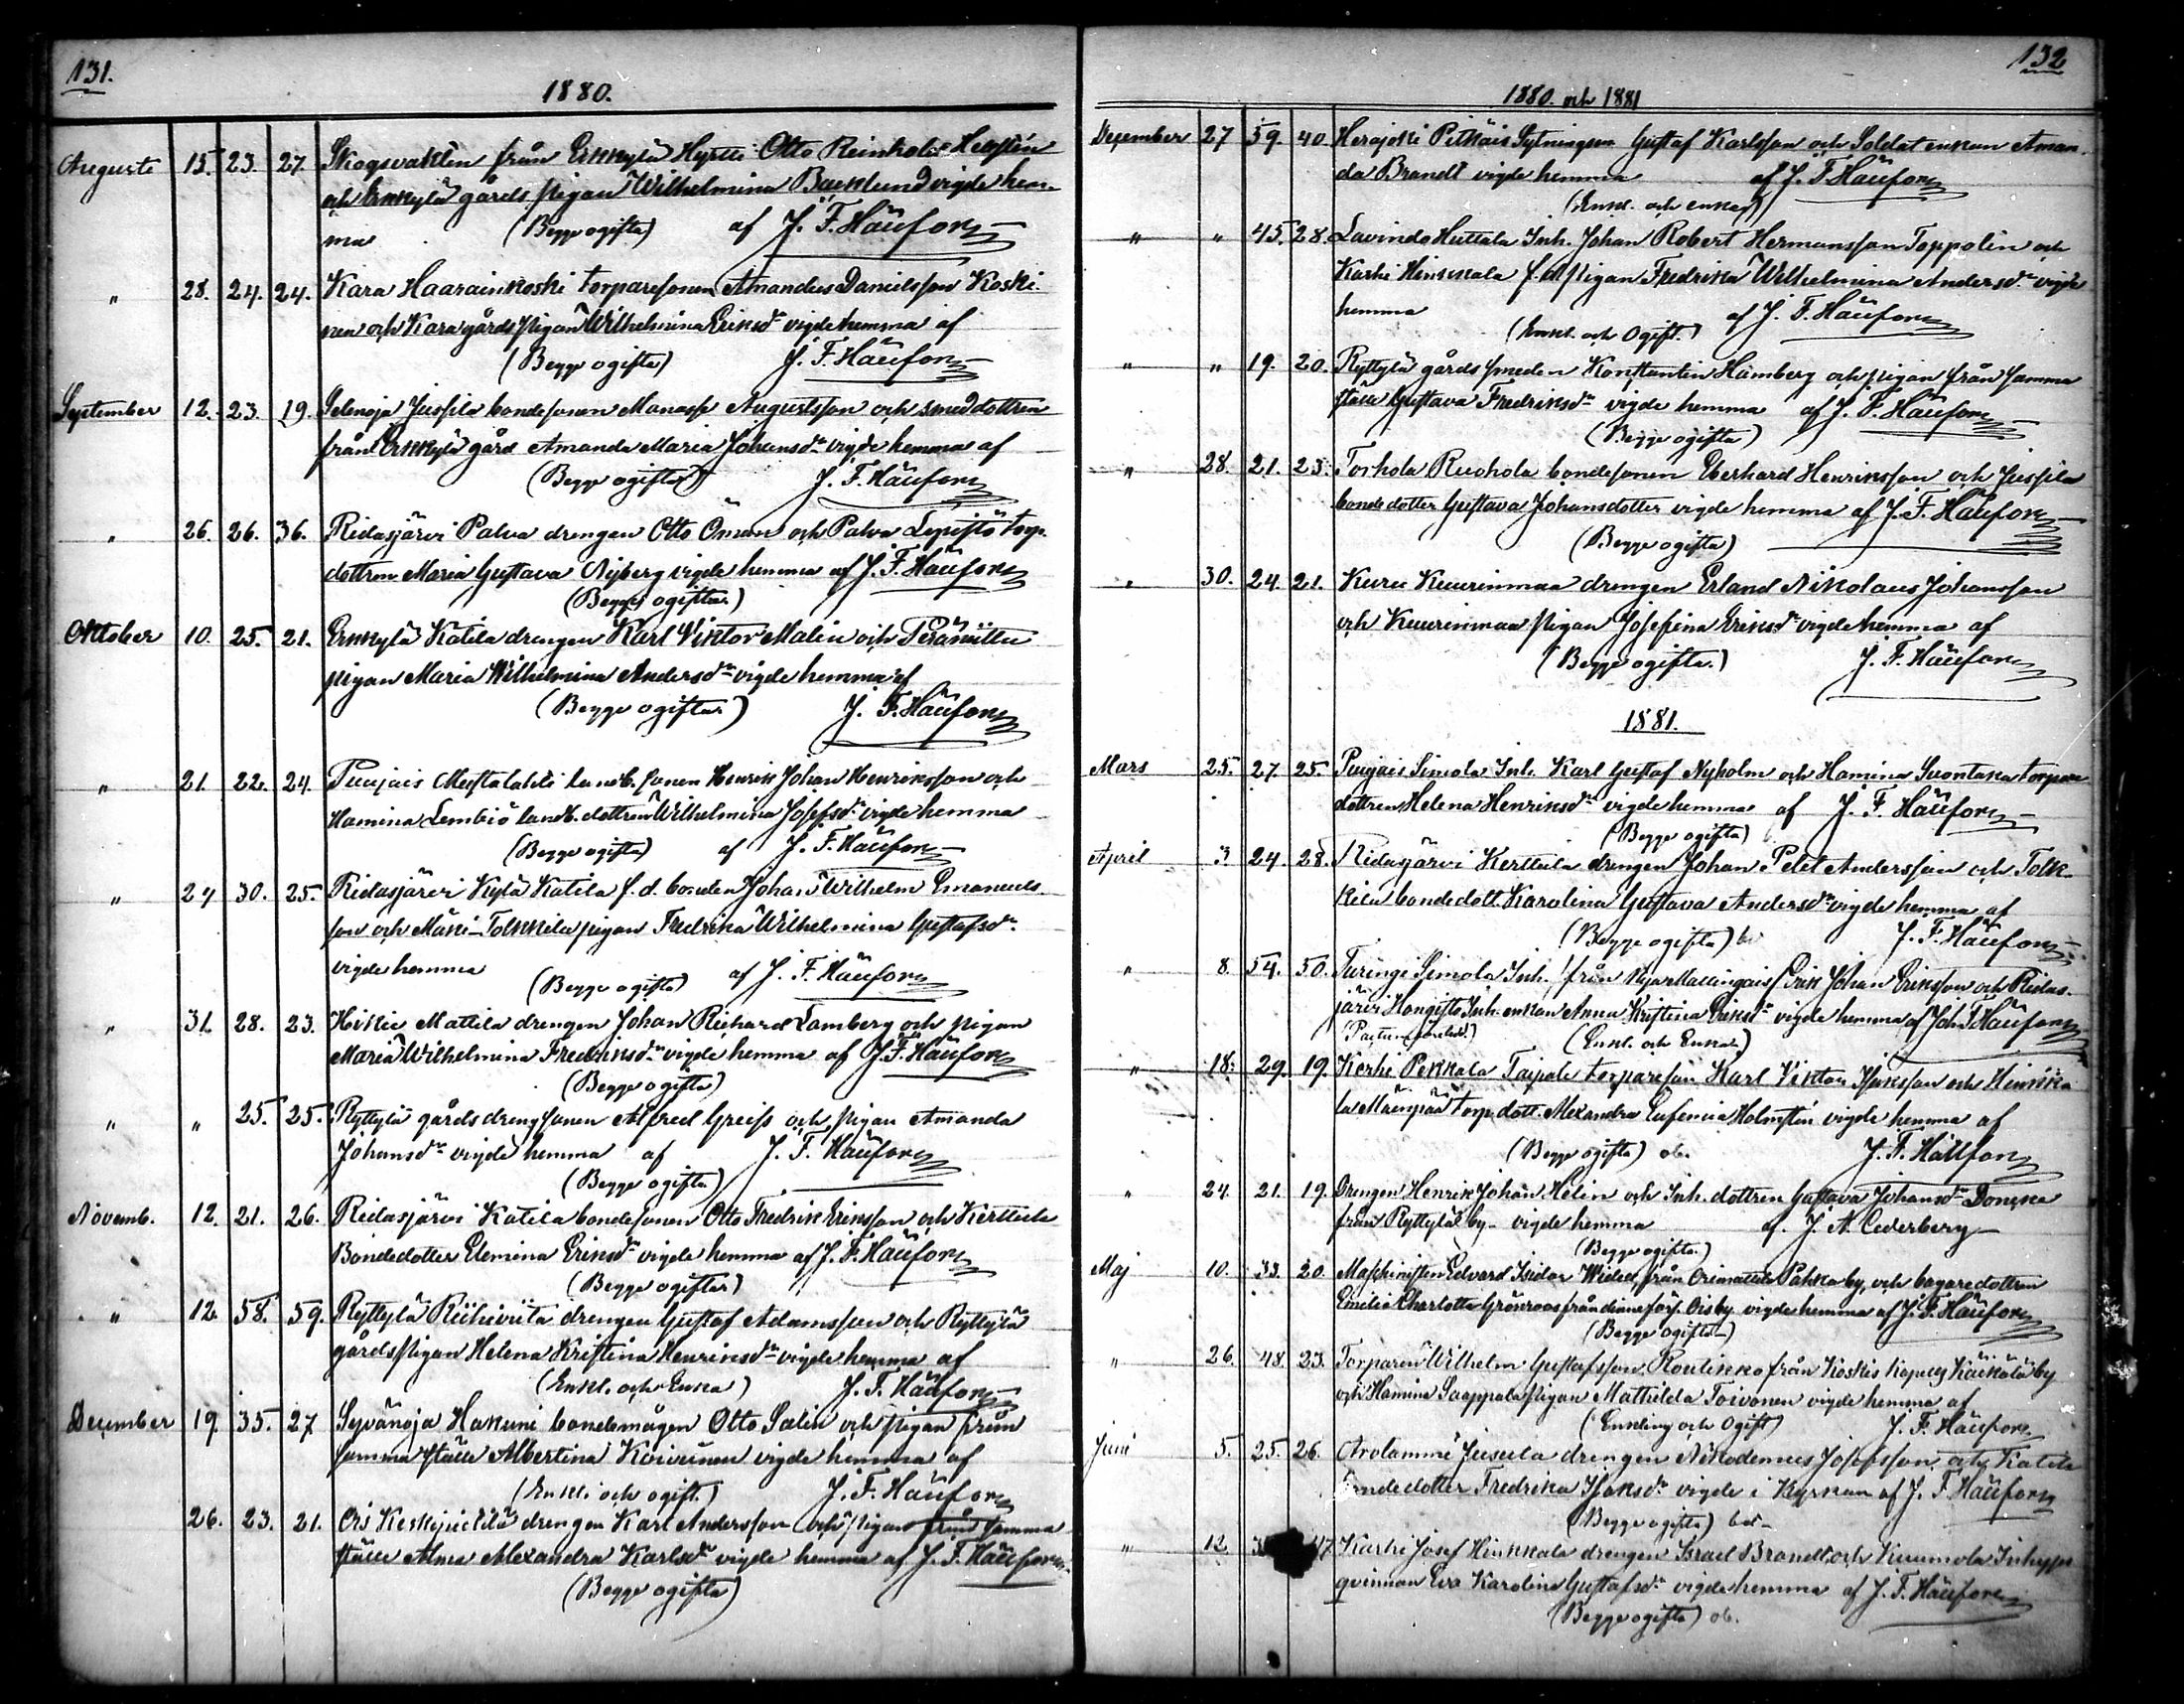 131.
1880.
Augusti 15. 23. 27. Skogsvakten från Erkkylä Hyrtti Otto Reinhold
och Erkkylä gårds pigan Wilhelmina Backlund vigde hem-
ma (Begge ogifta) af J. F. Häufors
" 28. 24. 24. Kara Haarainkoski torparesonen Amandus Danielsson Koski-
nen och Kara gårds pigan Wilhelmina Eriksdr vigde hemma af
(Begge ogifta) J. F. Häufors
September 12. 23. 19. Selenoja Jussila bondesonen Manasse Augustsson och smeddottren
från Erkkylä gård Amanda Maria Johansdr vigde hemma af
(Begge ogifta) J. F. Häufors
" 26. 26. 36. Ridasjärvi Palva drengen Otto Öman och Palva Lepistö torp.
dottren Maria Gustava Nyberg vigde hemma af J. F. Häufors
(Begge ogifta)
Oktober 10. 25. 21. Erkkylä Katila drengen Karl Viktor Malin och Peräniittu
pigan Maria Wilhelmina Andersdr vigde hemma af
(Begge ogifta) J. F. Häufors
" 21. 22. 24. Puujais landb. sonen Henrik Johan Henriksson och
Hamina Lembiö landb. dottren Wilhelmina Josefsdr vigde hemma
(Begge ogifta) af J. F. Häufors
" 27 30. 25. Ridasjärvi Kylä Katila f. d. bonden Johan Wilhelm Emanuels-
son och Mäki-Tolkkila pigan Fredrika Wilhelmina Gustafsdr
vigde hemma (Begge ogifta) af J. F. Häufors
" 31. 28. 23. Hikiä Mattila drengen Johan Richard Lamberg och pigan
Maria Wilhelmina Fredriksdr vigde hemma af J. F. Häufors
(Begge ogifta)
" " 25. 25. Ryttylä gårds drengsonen Alfred Greiss och pigan Amanda
Johansdr vigde hemma af J. F. Häufors
(Begge ogifta)
Novemb. 12. 21. 26. Ridasjärvi Katila bondesonen Otto Fredrik Eriksson och Kerttula
Bondedotter Elemina Eriksdr vigde hemma af J. F. Häufors
(Begge ogifta)
" 12. 58. 59. Ryttylä Riihiviita drengen Gustaf Adamsson och Ryttylä
gårds pigan Helena Kristina Henriksdr vigde hemma af
(Enkl. och Enka) J. F. Häufors
December 19. 35. 27 Syvänoja Hakuni bondemågen Otto Salin och pigan från
samma ställe Albertina Koivunen vigde hemma af
(Enkl. och ogift.) J. F. Häufors
26. 23. 21. Ois drengen Karl Andersson och pigan från samma
ställe Alma Alexandra Karlsdr vigde hemma af J. F. Häufors
(Begge ogifta)
132
1880. och 1881
December 27 59. 40. Herajoki Pitkäis Sytningsm. Gustaf Karlsson och Soldat enkan Aman-
da Brandt vigde hemma af J. F. Häufors
(Enkl. och enka)
" " 45. 28. Lavinto Huttala Inh. Johan Robert Hermansson Toppolin och
Karhi Hinkkala f. d. pigan Fredrika Wilhelmina Andersdr vigde
hemma (Enkl. och Ogift.) af J. F. Häufors
" " 19. 20. Ryttylä gårds smeden Konstantin Hamberg och pigan från samma
ställe Gustava Fredriksdr vigde hemma af J. F. Häufors
(Begge ogifta)
" 28. 21. 23. Torhola Ruohola bondesonen Eberhard Henriksson och Jussila
bondedotter Gustava Johansdotter vigde hemma af J. F. Häufors
(Begge ogifta)
" 30. 24. 21. Kuru Kuurinmaa drengen Erland Nikolaus Johansson
och Kuurinmaa pigan Josefina Eriksdr vigde hemma af
(Begge ogifta.) J. F. Häufors
1881.
Mars 25. 27. 25. Puujais Simola Inh. Karl Gustaf Nyholm och Hamina Suontaka torpare
dottren Helena Henriksdr vigde hemma af J. F. Häufors
(Begge ogifta)
April 3 24. 28. Ridasjärvi Kerttula drengen Johan Petet Andersson och Tolk-
kila bondedott. Karolina Gustava Andersdr vigde hemma af
(Begge ogifta) J. F. Häufors
" 8. 54. 50. Turinge Simola Inh. från Erik Johan Eriksson och Ridas-
järvi Hongisto Inh. enkan Anna Kristina Eriksdr vigde hemma af Joh. F. Häufors
(Enkl. och Enka)
" 18. 29. 19. Karhi Pekkala Taipale torpareson Karl Viktor Isaksson och Hinkka-
la Mäenpää torp. dott. Alexandra Eufemia Holmstén vigde hemma af
(Begge ogifta) ob. J. F. Häufors
" 24. 21. 19. Drengen Henrik Johan Helin och Inh. dottren Gustava Johansdr Donska
från Ryttylä by vigde hemma af J. A. Cederberg
(Begge ogifta.)
Maj 10. 33. 20. Maschinisten Edvard Isidor från Orimattila by, och bagaredottren
Emilia Charlotta Grönroos från Ois by vigde hemma af J. F. Häufors
(Begge ogifta)
" 26. 48. 23. Torparen Wilhelm Gustafsson Roulikko från Koskis Kapell Käikälä by
och Hamina Saappala pigan Mathilda Toivonen vigde hemma af
(Enkling och Ogift) J. F. Häufors
Juni 5. 25. 26. Arolammi Juisula drengen Nikodemus Josefsson och Katila
bondedotter Fredrika Isaksdr vigde i Kyrkan af J. F. Häufors
(Begge ogifta)
" 12. 47. Karhi Josef Hinkkala drengen Israel Brandt och Kuumola Inhyses
qvinnan Eva Karolina Gustafsdr vigde hemma af J. F. Häufors
(Begge ogifta) ob.